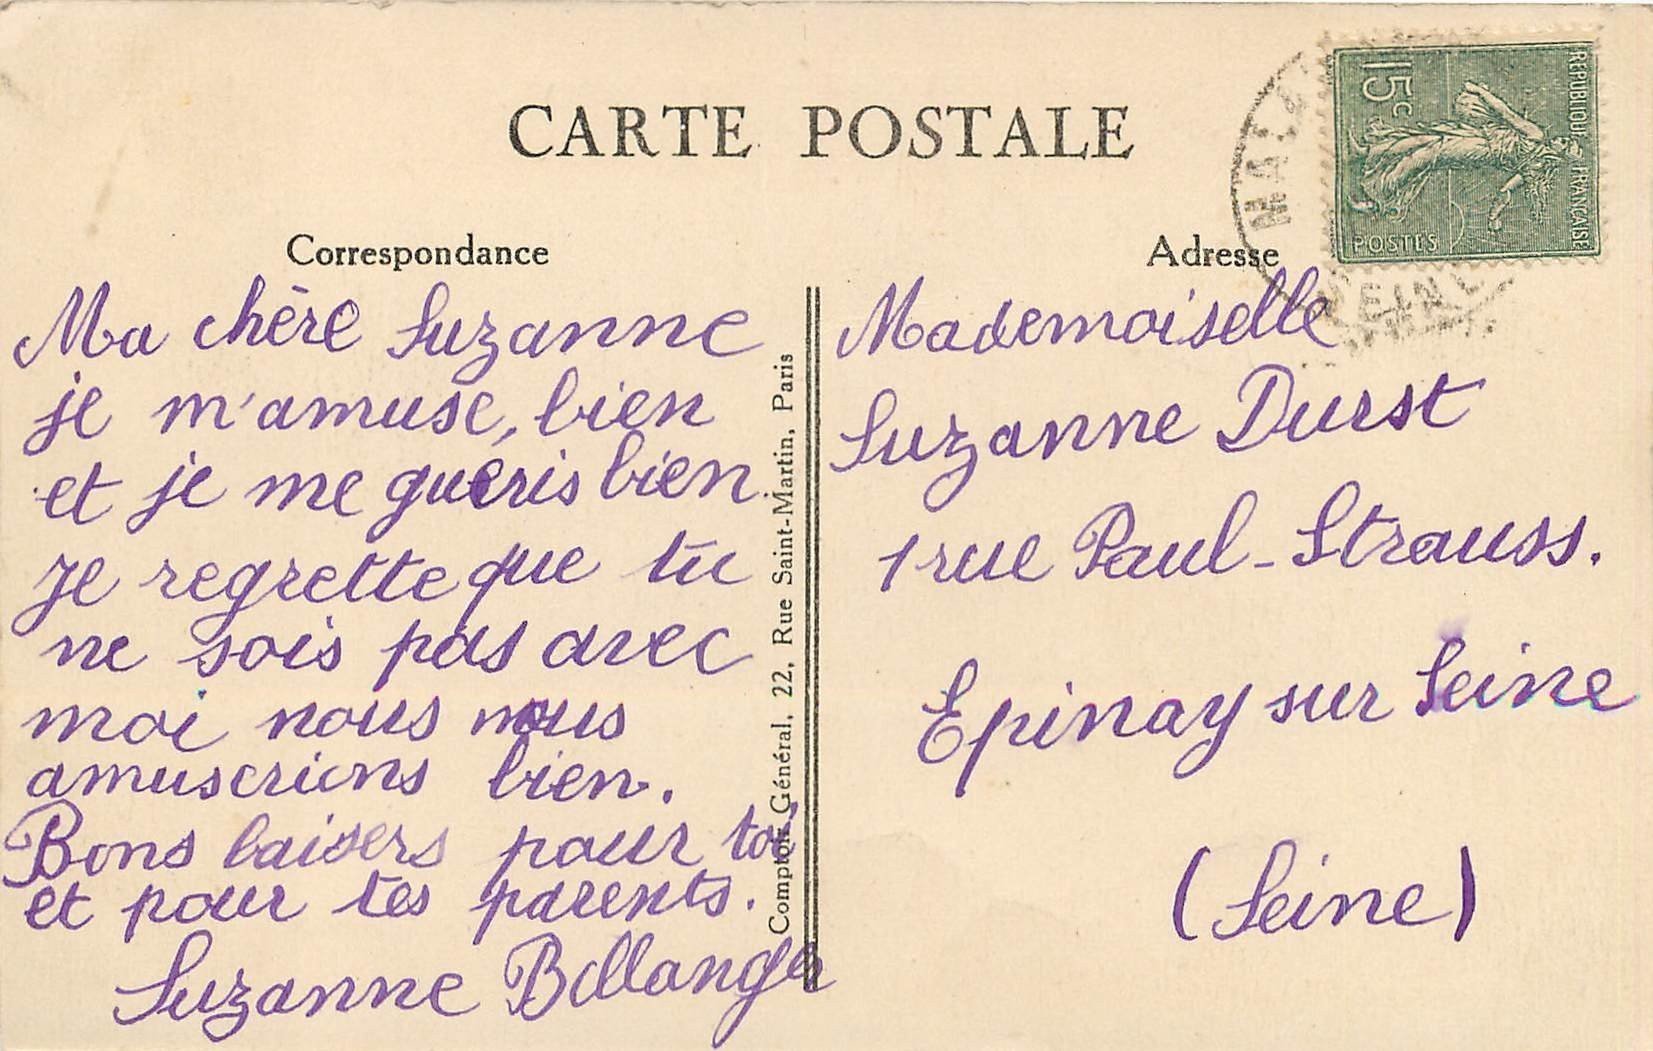 CARTE POSTALE
Correspondance
Ma chère Suzanne
je m'amuse, bien
et je me gueris bien.
Je regrette que tu
ne sois pas avec
moi nous nous
amuserions bien.
Bons baisers pour toi
et pour tes parents.
Suzanne Bellanger
Comptoir Général, 22, Rue Saint-Martin, Paris
Adresse
Mademoiselle
Suzanne Durst
1 rue Paul-Strauss.
Epinay sur Seine
(Seine)
REPUBLIQUE FRANÇAISE
15c
POSTES
SEINE